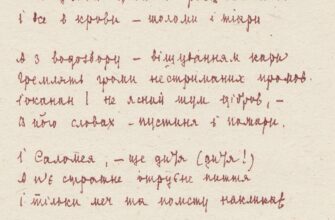 І все в крови – шоломи і тіяри

А з водозбору – віщуванням кари
Гремлять громи нестриманих промов.
Іоканан! не ясний шум дібров, –
В його словах – пустиня і пожари.

І Саломея, – ще дитя (дитя!)
А п'є страшне отрутне пиття
І тільки меч та помсту накликає